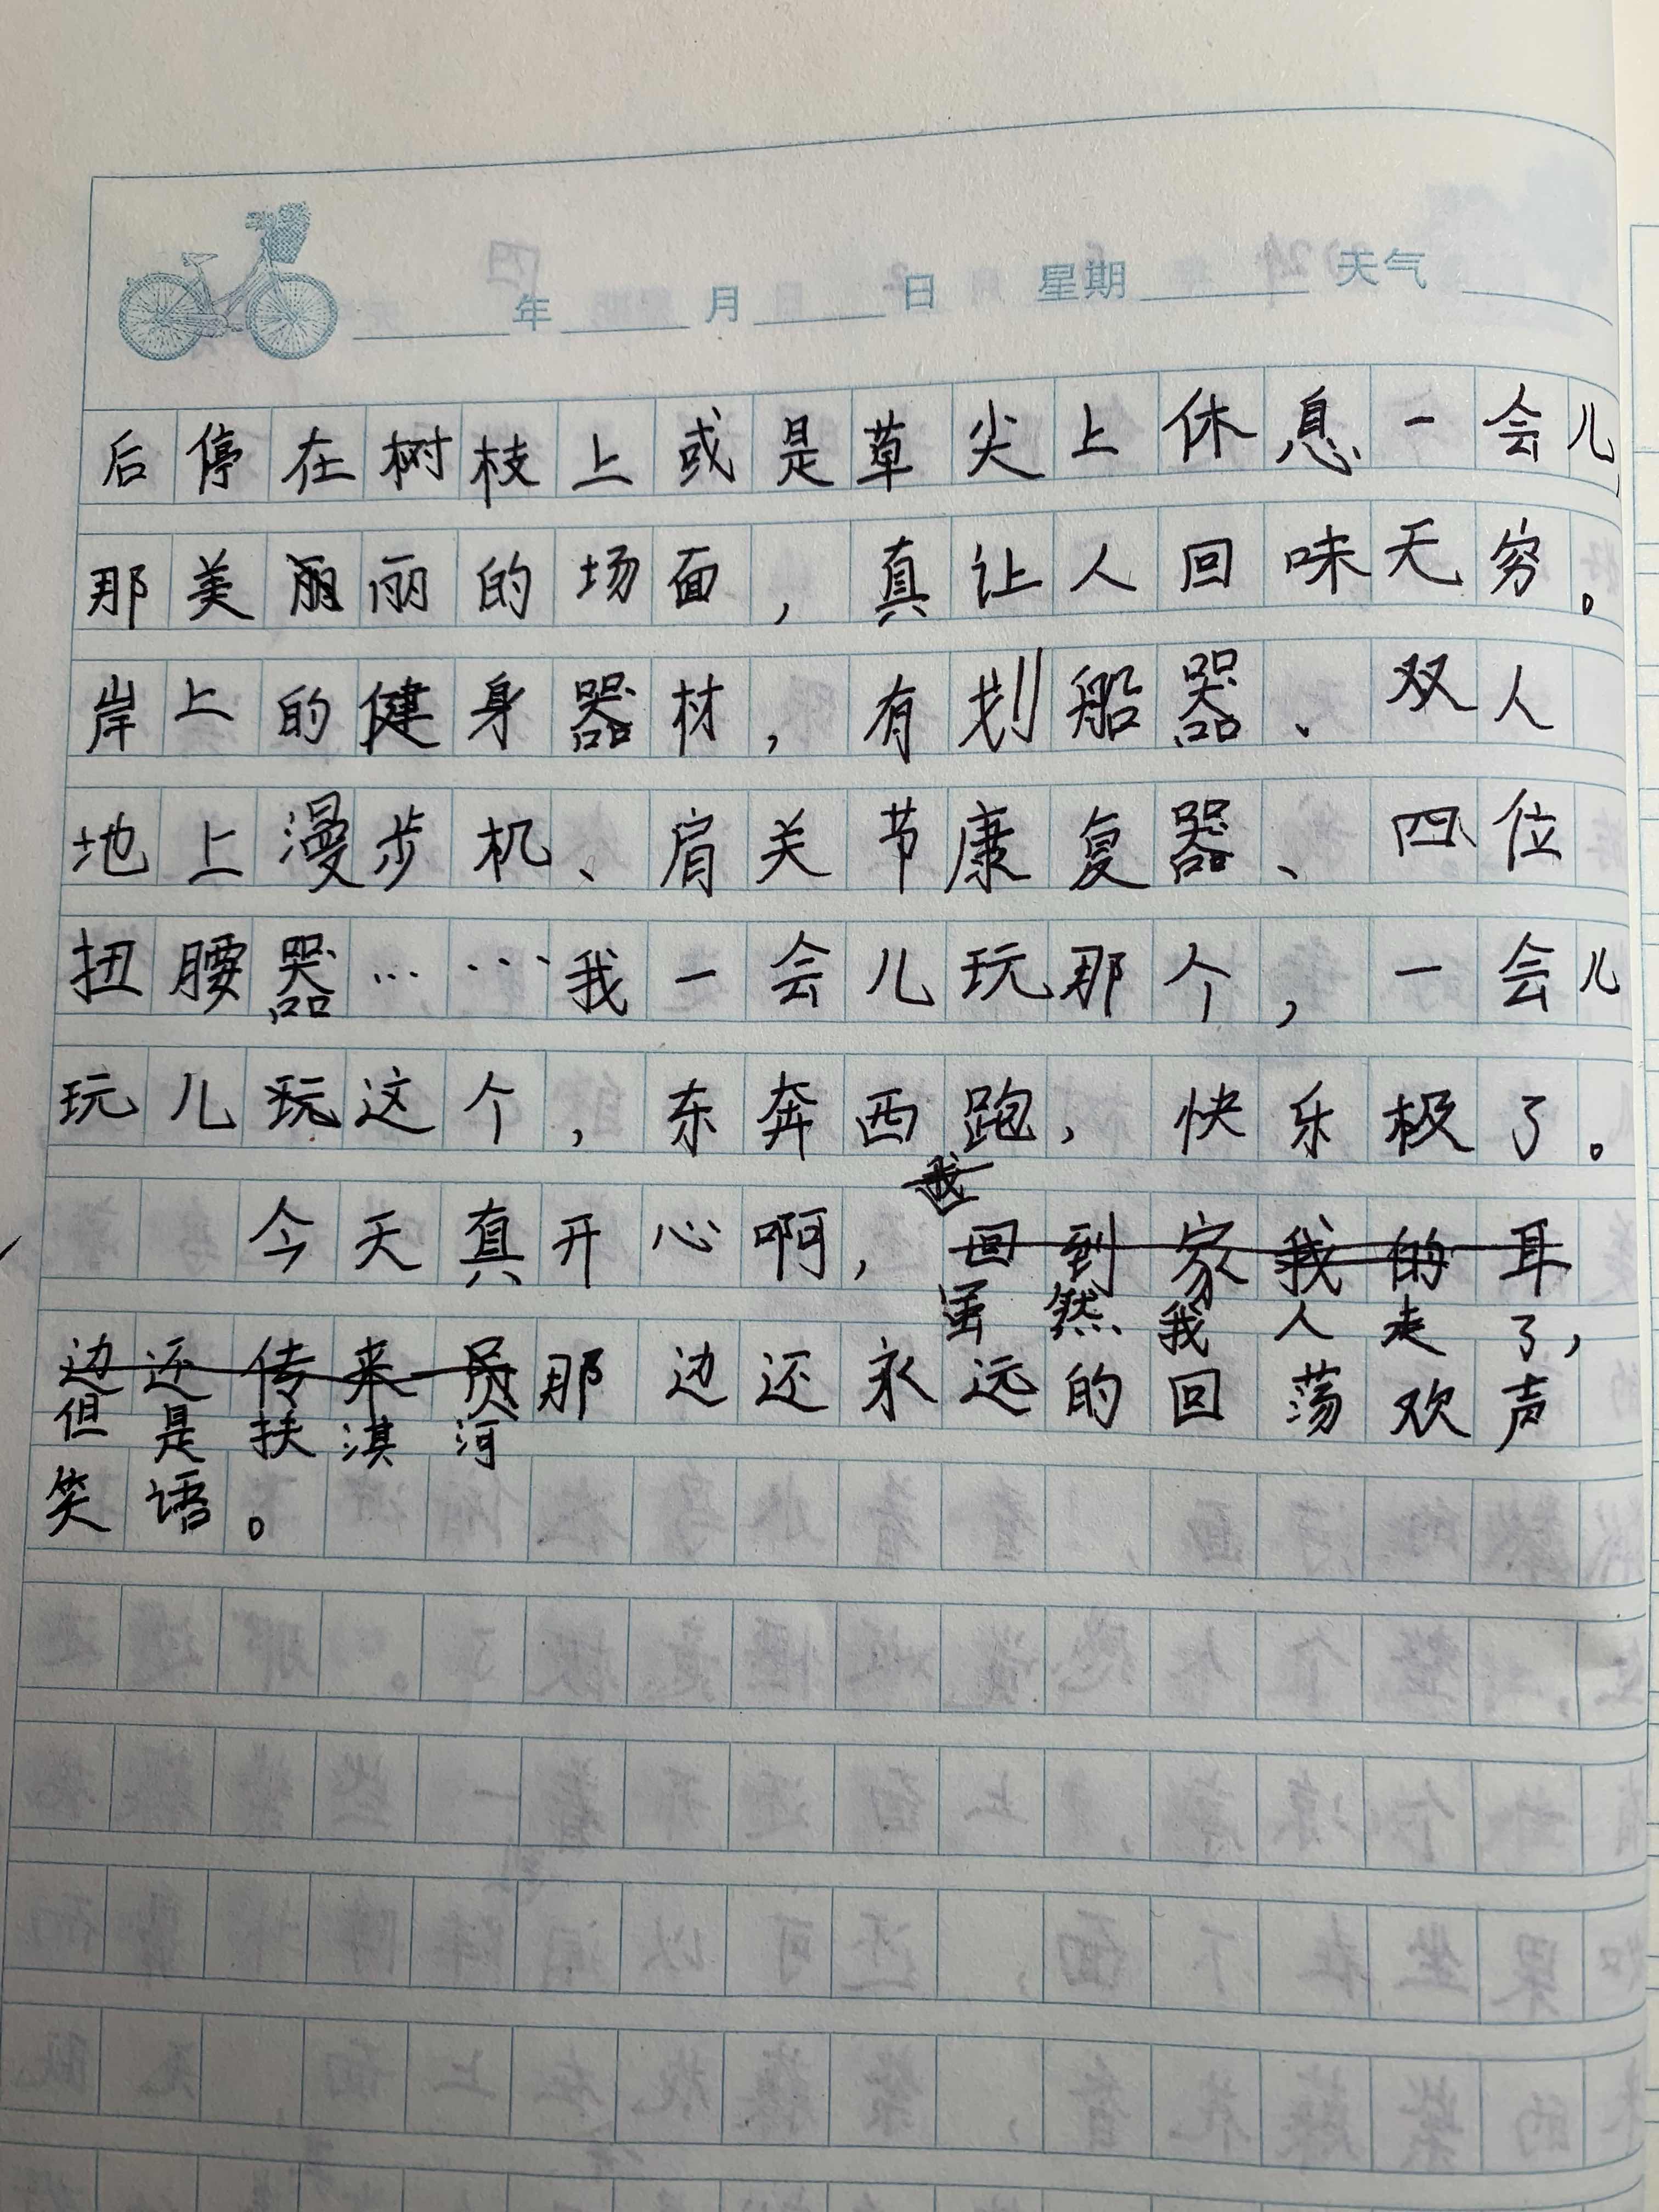 年 月 日 星期 天气
后停在树枝上或是草尖上休息一会儿,
那美丽丽的场面，真让人回味无穷。
岸上的健身器材，有划船器、双人
地上漫步机、肩关节康复器、四位
扭腰器……我一会儿玩那个，一会儿
玩儿玩这个，东奔西跑，快乐极了。
我
今天真开心啊，回到家我的耳
虽然我人走了，
边还传来一员那边还永远的回荡欢声
但是扶淇河
笑语。